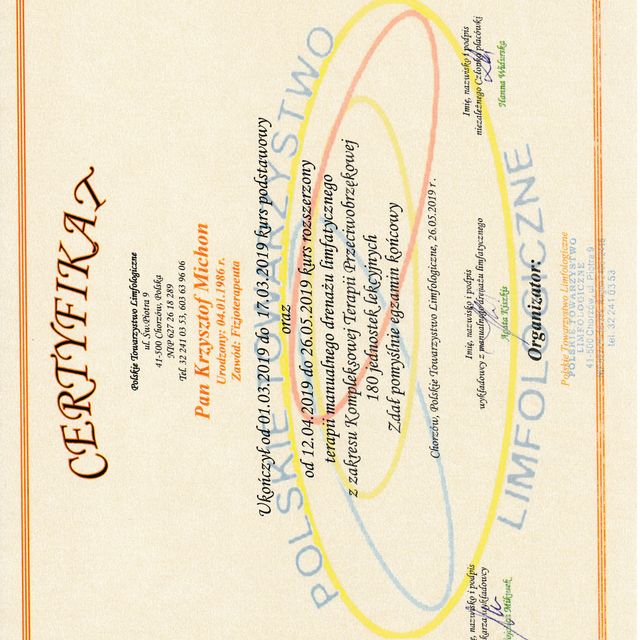 CERTYFIKAT
Polskie Towarzystwo Limfologiczne
ul. Św.Piotra 9
41-500 Chorzów, Polska
NIP 627 26 18 289
Tel. 32 241 03 53, 603 63 96 06
Pan Krzysztof Michon
Urodzony: 04.01.1986 r.
Zawód: Fizjoterapeuta
Ukończył od 01.03.2019 do 17.03.2019 kurs podstawowy
oraz
od 12.04.2019 do 26.05.2019 kurs rozszerzony
terapii manualnego drenażu limfatycznego
z zakresu Kompleksowej Terapii Przeciwobrzękowej
180 jednostek lekcyjnych
Zdał pomyślnie egzamin końcowy
Chorzów, Polskie Towarzystwo Limfologiczne, 26.05.2019 r.
nazwisko i podpis
wykładowcy
Imię, nazwisko i podpis
wykładowcy z manualnego drenażu limfatycznego
Agata Kiszka
Imię, nazwisko i podpis
niezależnego Członka placówki
Hanna Widurska
Organizator:
Polskie Towarzystwo Limfologiczne
POLSKIE TOWARZYSTWO
LIMFOLOGICZNE
41-500 Chorzów, ul. Piotra 9
tel. 32 241 03 53
POLSKIE TOWARZYSTWO
LIMFOLOGICZNE